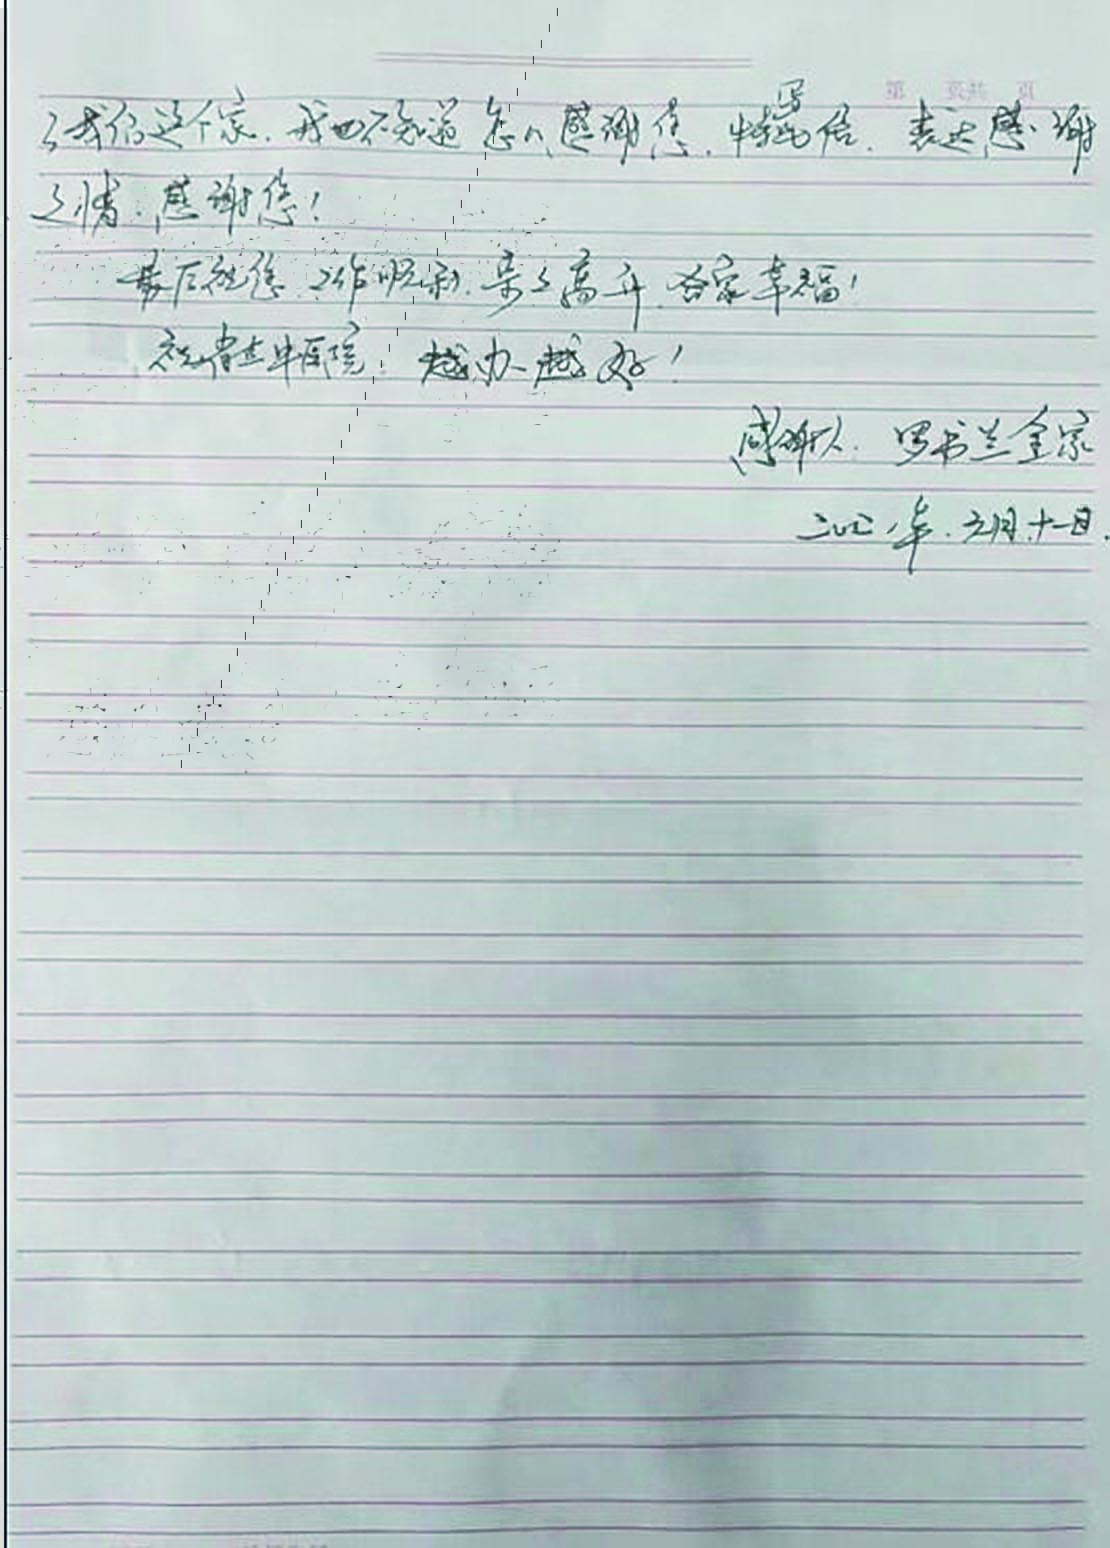 了我们这个家.我也不知道怎么感谢您.特写信.表达感谢
之情.感谢您!
最后祝您工作顺利.步步高升.合家幸福!
祝省立中医院.越办越好!
感谢人.罗书兰全家
二〇二一年.六月十一日.